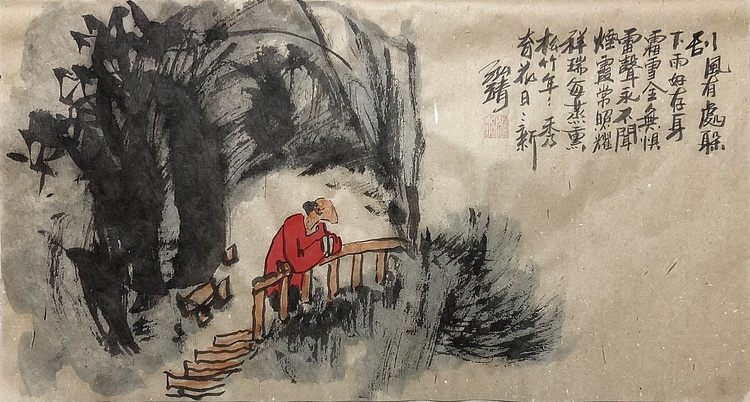 刮風有處躲
下雨好存身
霜雪全無懼
雷聲永不聞
煙霞常照耀
祥瑞每蒸熏
松竹年々秀
奇花日々新